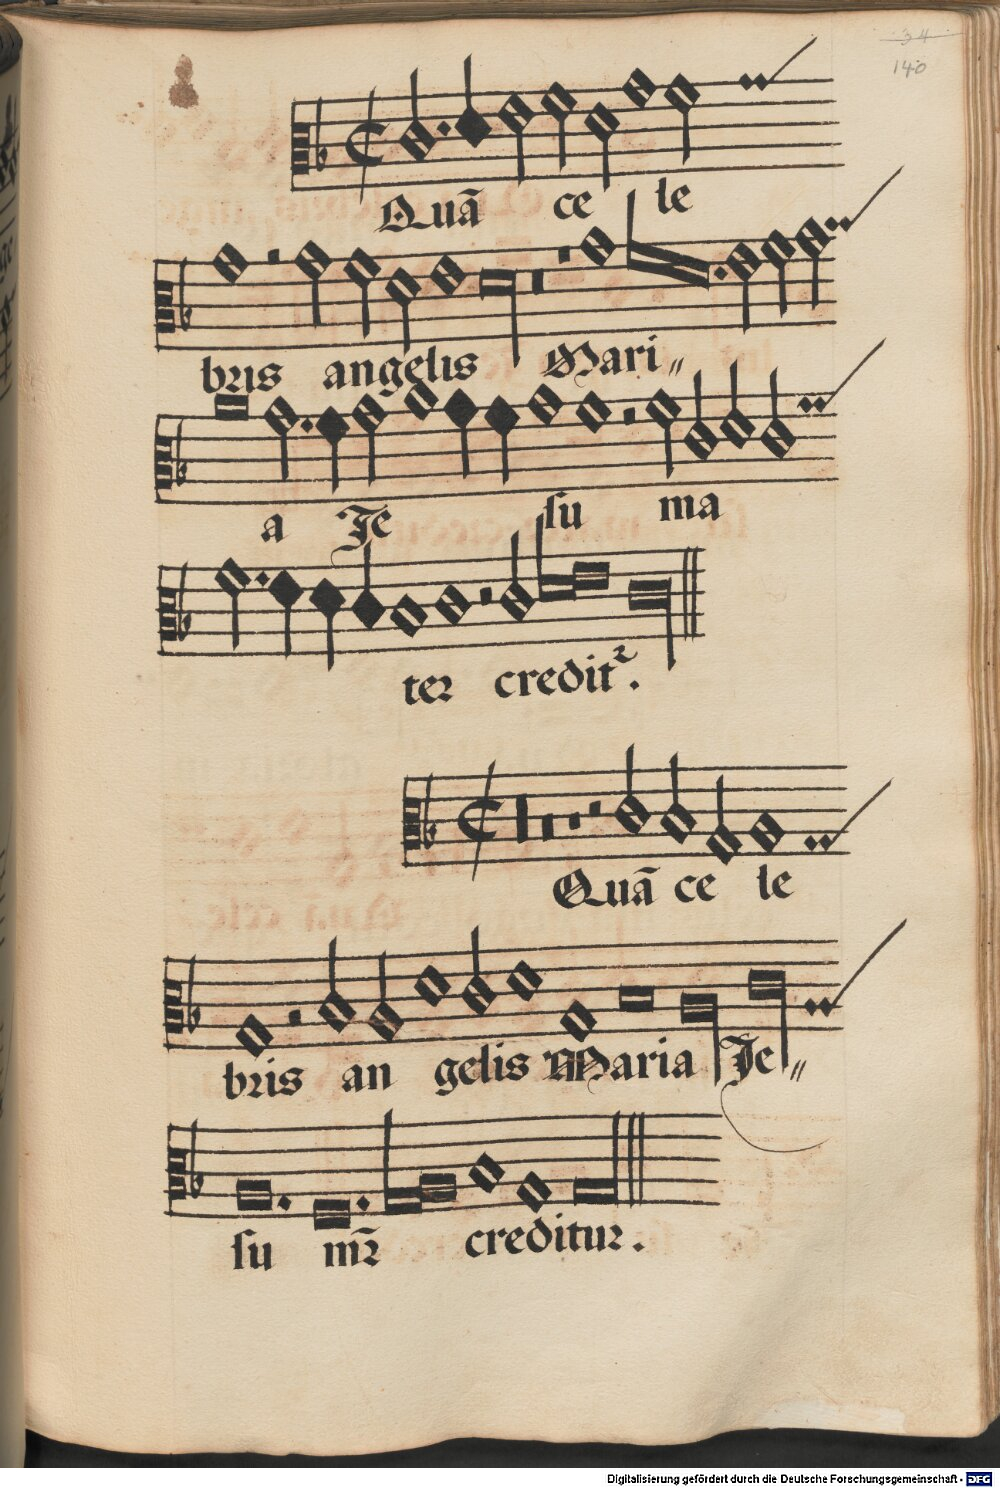 34
140
Quā ce le
bris angelis Mari〃
a Je su ma
ter creditꝛ.
Quā ce le
bris an gelis Maria Je〃
su mr̄ creditur.
Digitalisierung gefördert durch die Deutsche Forschungsgemeinschaft - DFG